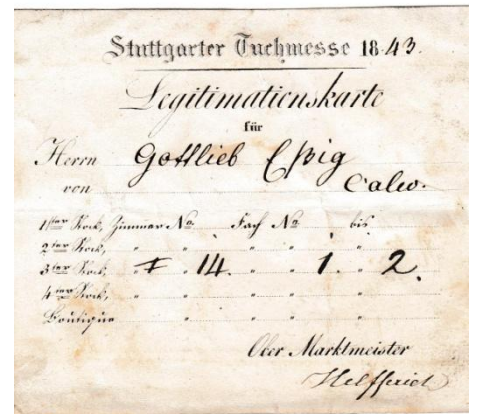 Stuttgarter Tuchmesse 1843.
Legitimationskarte
für
Herrn Gottlieb Eßig
von Calw.
1ster Stock, Zimmer No. Fach No. bis
2ter Stock, " " " " "
3ter Stock, " 14. " " 1. " 2.
4ter Stock, " " " " "
Boutique " " " " "
Ober Marktmeister
Helfferich